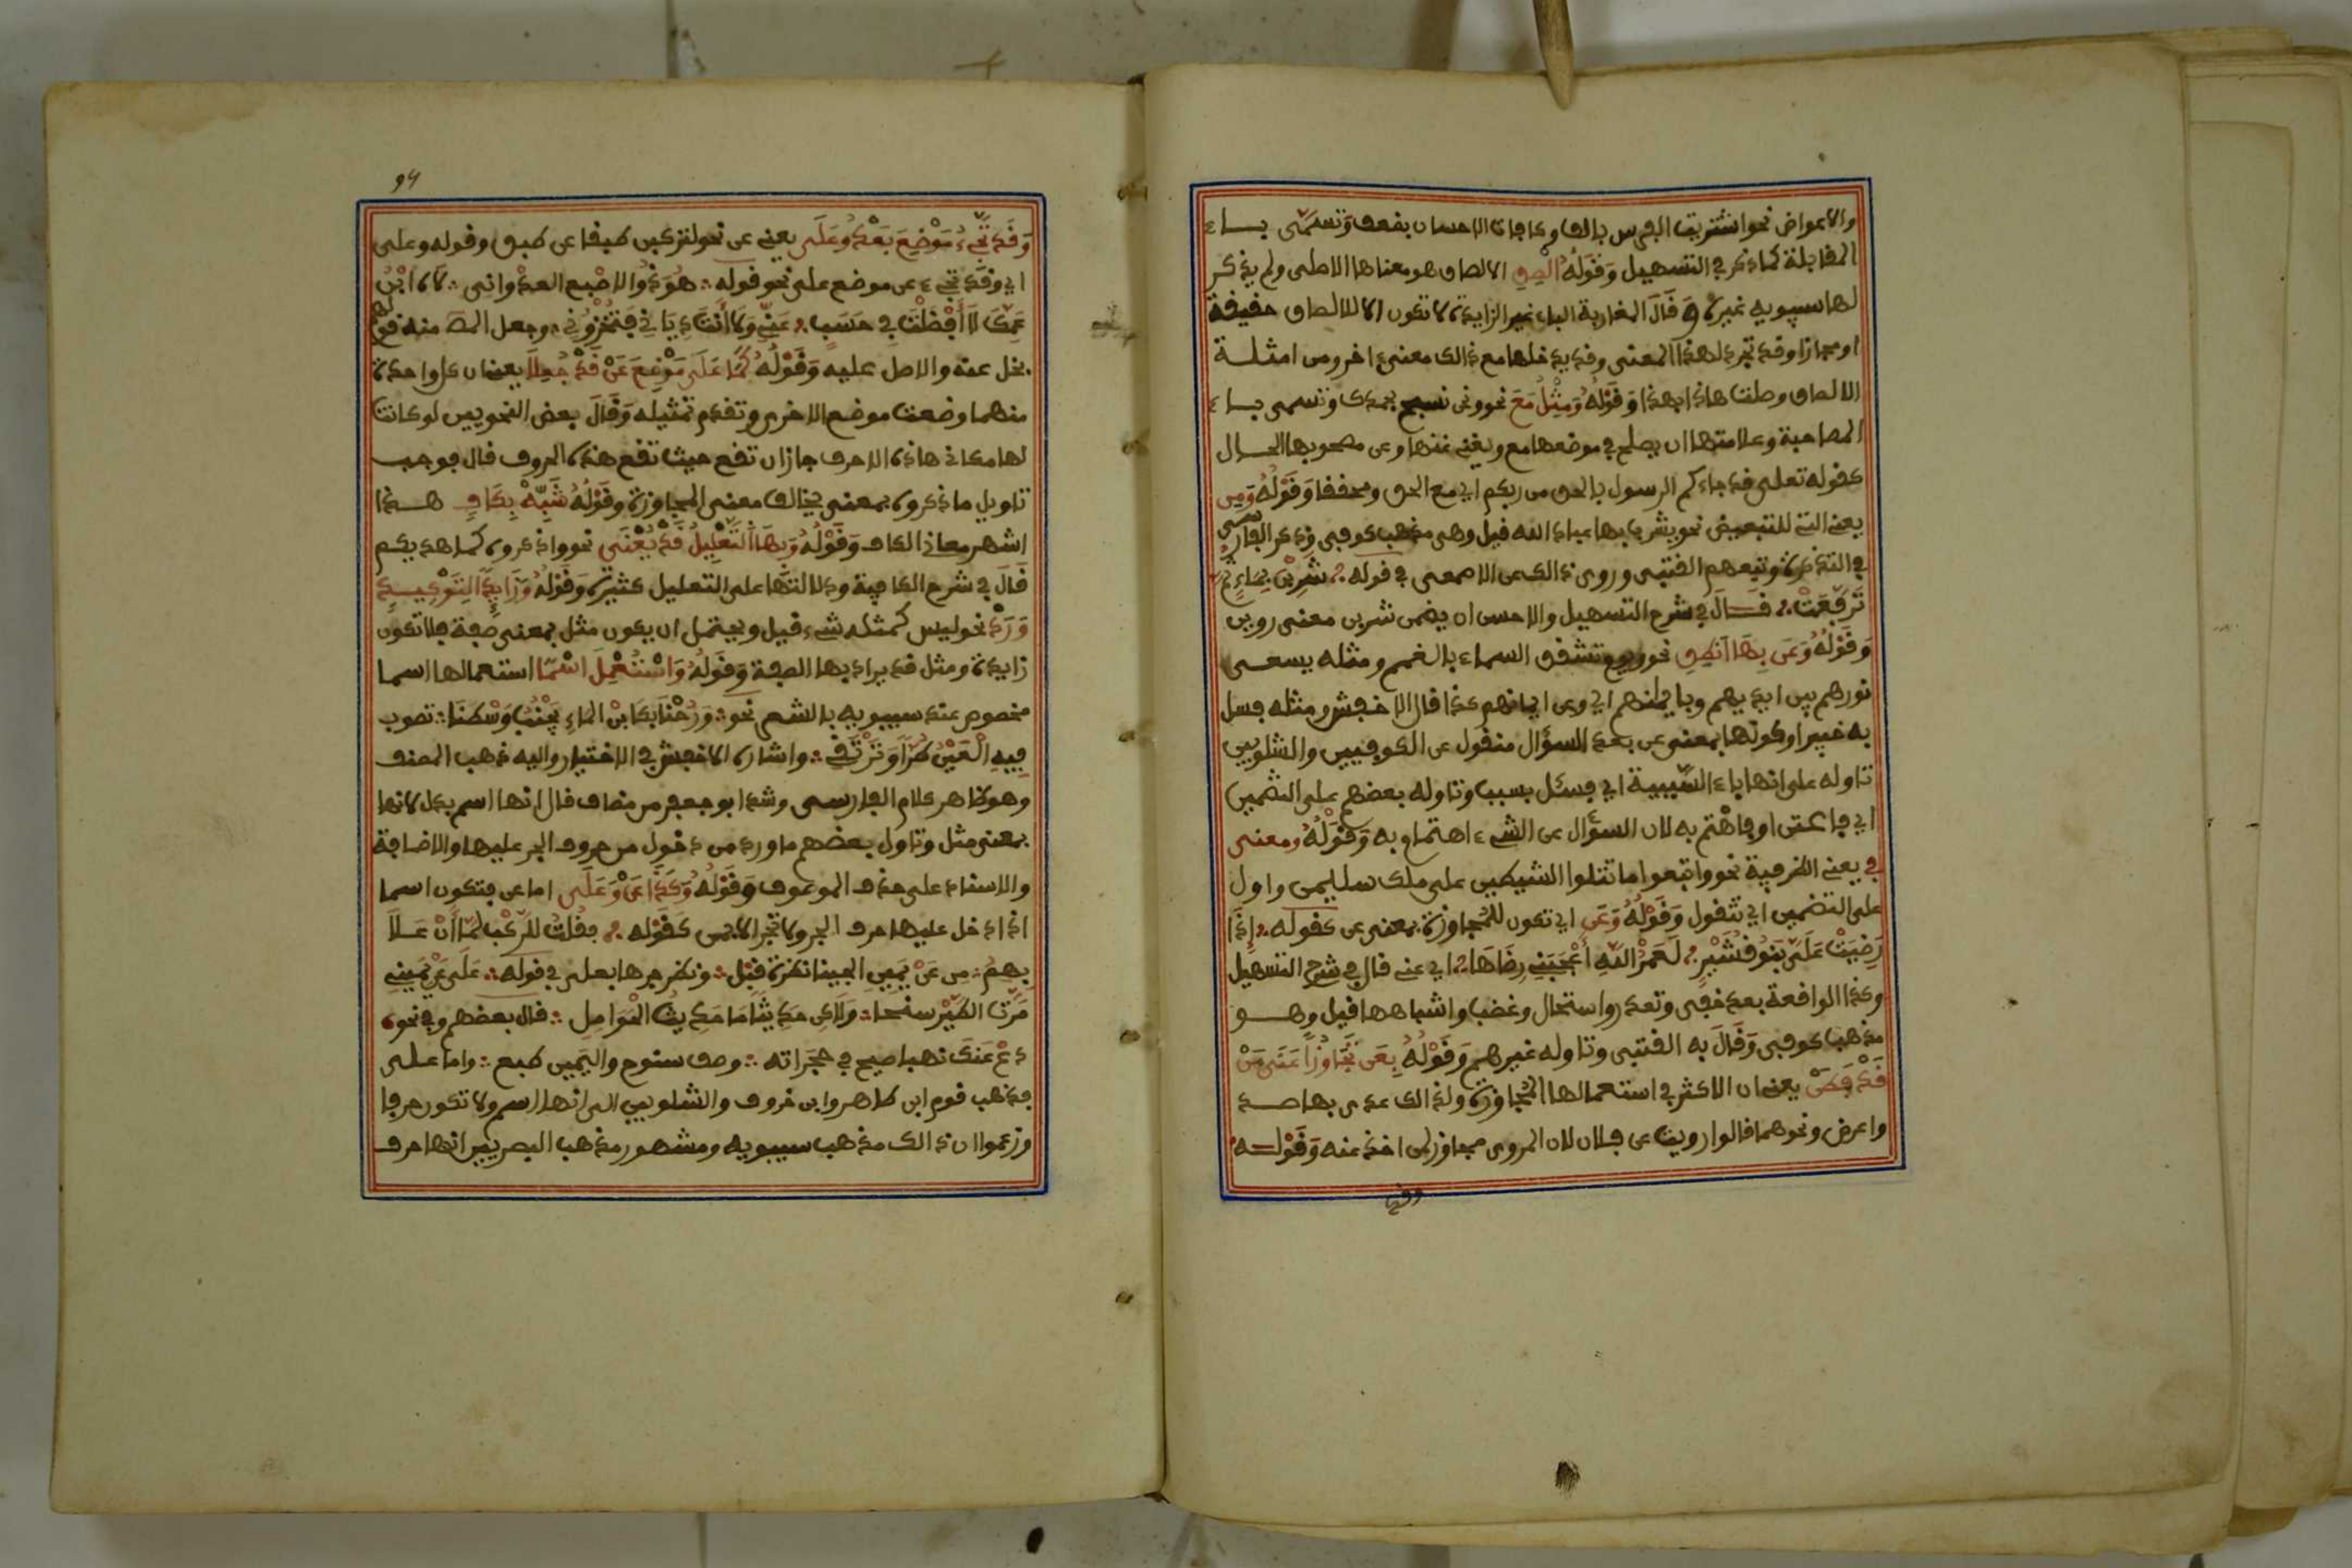 والاعواض نحو اشتريت الفرس بالف وكافات الاحسان بضعف وتسمى باء
المقابلة كما ذكر في التسهيل وَقَوْلُهُ الْصِقِ الالصاق هو معناها الاصلى ولم يذكر
لها سيبويه غيره وَقَالَ المغاربة الباء غير الزايدة لا تكون الا للالصاق حقيقة
او مجازا وقد تجرد لهذا المعنى وقد يدخلها مع ذالك معنىء اخر ومن امثلة
الالصاق وصلت هاذا بهذا وَقَوْلُهُ وَمِثْلُ مَعَ نحو ونحن نسبح بحمدك وتسمى باء
المصاحبة وعلامتها ان يصلح في موضعها مع ويغني عنها وعن مصحوبها الحال
كقوله تعلى قد جاءكم الرسول بالحق من ربكم اي مع الحق ومحققا وَقَوْلُهُ وَمِن
يعني التي للتبعيض نحو يشرب بها عباد الله قيل وهى مذهب كوفي وذكر الفارسى
في التذكرة وتبعهم القتبى وروى ذالك عن الاصمعى في قوله شَرِبْنَ بِمَاءِ
تَرَفَّعَتْ قال في شرح التسهيل والاحسن ان يضمن شربن معنى روين
وَقَوْلُهُ وَعَن بِهَا انْطِقِ نحو ويوم تشقق السماء بالغمم ومثله يسعى
نورهم بين ايديهم وبايمانهم اي وعن ايمانهم كذا قال الاخفش ومثله فسل
به خبيرا وكونها بمعنى عن بعد السؤال منقول عن الكوفيين والشلوبين
تاوله على انها باء السببية اي فسئل بسببه وتاوله بعضهم على التضمين
اي فاعتن او فاهْتم به لان السؤال عن الشيء اهتمام به وَقَوْلُهُ ومعنى
في يعني الظرفية نحو واتبعوا ما تتلوا الشيطين على ملك سليمن واول
على التضمين اي تتقول وَقَوْلُهُ وَعَن اي تكون للمجاوزة بمعنى عن كقوله إِذَا
رَضِيَتْ عَلَىَّ بَنُو قُشَيْرٍ لَعَمْرُ اللهِ أَعْجَبَنِي رِضَاهَا اي عني قال في شرح التسهيل
وكذا الواقعة بعد خفى وتعذر واستحال وغضب واشباهها قيل وهو
مذهب كوفي وَقَالَ به القتبى وتاوله غيرهم وَقَوْلُهُ بِعَن تَجَاوُزًا عَنَى مَنْ
قَدْ فَطَنْ يعني ان الاكثر في استعمالها المجاوزة ولذالك عدى بها صد
واعرض ونحوهما قالوا رويت عن فلان لان المروى مجاوز لمن اخذ عنه وَقَوْلُه
وقد
94
وَقَد تَجِيءُ مَوْضِعَ بَعْدُ وَعَلَى يعني عن نحو لتركبن طبقا عن طبق وقوله وعلى
اي وقد تجيء عن موضع على نحو قوله هُوَ ذُو الاصْبع العدْوانى لَاهِ ابْنُ
عَمِّكَ لَا أَفْضَلْتَ فِي حَسَبٍ عَنِّي وَلَا أَنْتَ دَيَّانِي فَتَخْزُونِي وجعل المص منه قولهم
بخل عنه والاصل عليه وَقَوْلُهُ كَمَا عَلَى مَوْضِعَ عَنْ قَدْ جُعِلَا يعني ان كل واحدة
منهما وضعت موضع الاخرى وتقدم تمثيله وَقَالَ بعض النحويين لو كانت
لها معانى هاذه الاحرف جاز ان تقع حيث تقع هذه الحروف قال فوجب
تاويل ما ذكروه بمعنى يخالف معنى المجاوزة وَقَوْلُهُ شَبِّهْ بِكَافٍ هذا
اشهر معانى الكاف وَقَوْلُهُ وَبِهَا التَّعْلِيلُ قَدْ يُعْنَى نحو واذكروه كما هديكم
قَالَ في شرح الكافية ودلالتها على التعليل كثيرة وَقَوْلُهُ وَزَايِدًا لِتَوْكِيدٍ
وَرَدْ نحو ليس كمثله شيء قيل ويحتمل ان يكون مثل بمعنى صفة فلا تكون
زايدة ومثل قد يراد بها الصفة وَقَوْلُهُ وَاسْتُعْمِلَ اسْمًا استعمالها اسما
مخصوص عند سيبويه بالشعر نحو وَرُحْنَا بِكَابْنِ المَاءِ يُجْنَبُ وَسْطَنَا تصوب
فِيهِ الْعَيْنُ طَوْرًا وَتَرْتَقِي واشاره الاخفش في الاختيار واليه ذهب المصنف
وهو ظاهر كلام الفارسى وشذ ابو جعفر من مضاف قال انها اسم بكل لانها
بمعنى مثل وتاول بعضهم ما ورد من دخول من حروف الجر عليها والاضافة
والاسناد على حذف الموصوف وَقَوْلُهُ وَكَذَا عَنْ وَعَلَى اما عن فتكون اسما
اذا دخل عليها حرف الجر ولا تجر الا بمن كَقَوْلِه فقلت للرَّكْب لمَّا أَنْ عَلَا
بِهِمُ مِن عَنْ يَمِينِ الحبيا نظرة قَبْل وندر جرها بعلى في قوله عَلَى عَنْ يَمِينِي
مَرَّتِ الطَّيْرُ سنحا وَلَاكِن حَدِيثًا مَا حَدِيثُ الرَّوَاحِلِ قال بعضهم وفي نحو
دَعْ عَنكَ نهبا صيح في حجَرَاته وصف سنوح واليمين طبع واما على
فذهب قوم ابن طاهر وابن خروف والشلوبين الى انها اسم ولا تكون حرفا
وزعموا ان ذالك مذهب سيبويه ومشهور مذهب البصريين انها حرف